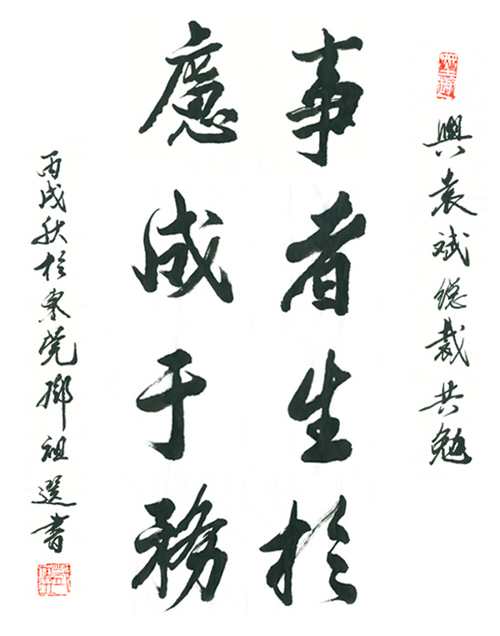 與袁斌總裁共勉
事者生於
慮成于務
丙戌秋於東莞祖選書